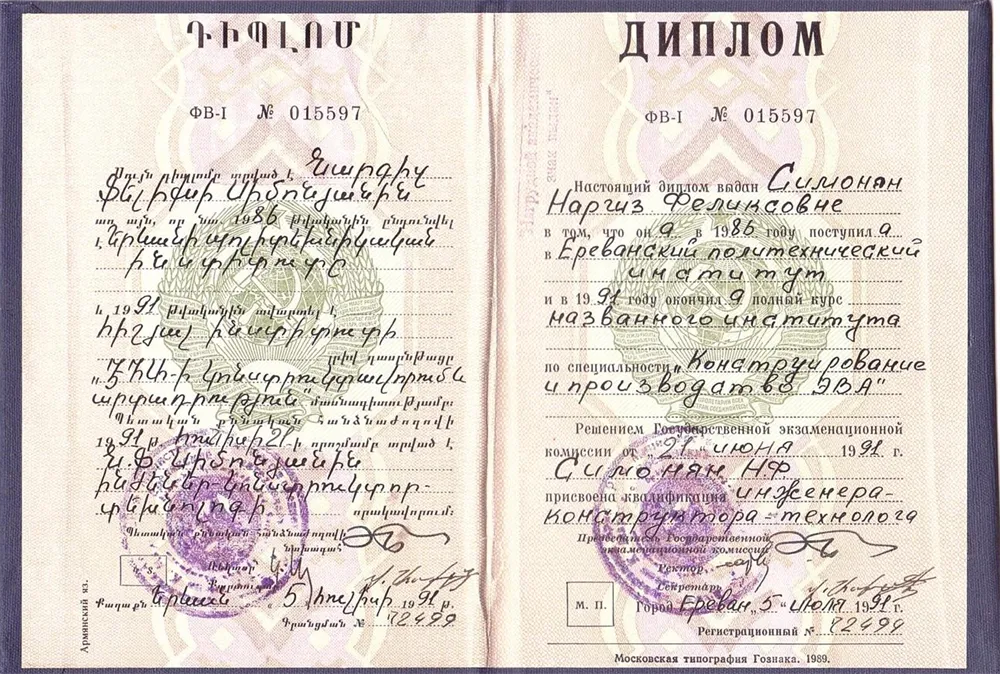 ԴԻՊԼՈՄ
ФВ-I № 015597
Սույն դիպլոմը տրված է Նարգիզ
Ֆելիքսի Սիմոնյանին
առ այն, որ նա 1986 թվականին ընդունվել
է Երևանի պոլիտեխնիկական
ինստիտուտը
և 1991 թվականին ավարտել է
հիշյալ ինստիտուտի
լրիվ դասընթացը
արտադրություն" մասնագիտությամբ:
Պետական քննական հանձնաժողովի
1991 թ. հունիսի 21-ի որոշմամբ տրված է
Ն.Ֆ. Սիմոնյանին
ինժեներ-կոնստրուկտոր-
տեխնոլոգի որակավորում:
Պետական քննական հանձնաժողովի
նախագահ
Ռեկտոր
Քարտուղար
Քաղաքն Երևան „5" հուլիսի 1991 թ.
Գրանցման № 72499
Армянский яз.
ДИПЛОМ
ФВ-I № 015597
Настоящий диплом выдан Симонян
Наргиз Феликсовне
в том, что она в 1986 году поступила
в Ереванский политехнический
институт
и в 1991 году окончила полный курс
названного института
по специальности „Конструирование
и производство ЭВА"
Решением Государственной экзаменационной
комиссии от „21" июня 1991 г.
Симонян НФ
присвоена квалификация инженера-
конструктора-технолога
Председатель Государственной
экзаменационной комиссии
Ректор
Секретарь
М. П.
Город Ереван „5" июля 1991 г.
Регистрационный № 72499
Московская типография Гознака. 1989.